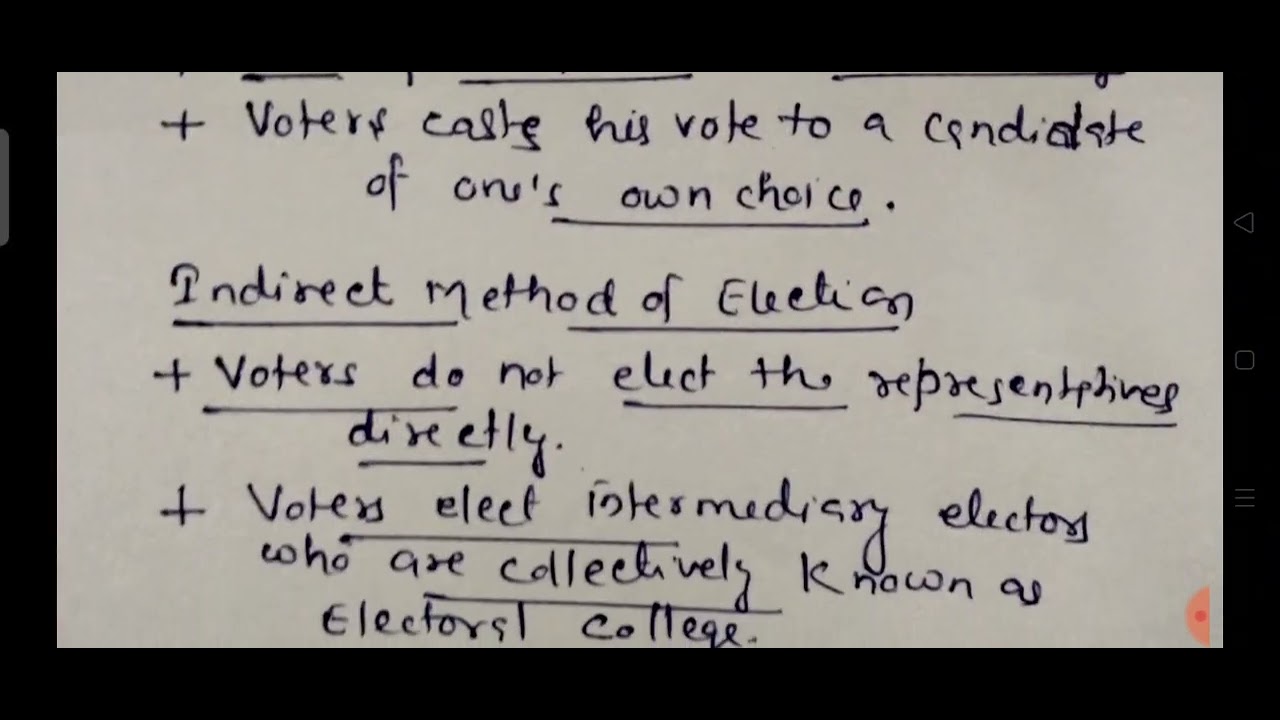 + Voters casts his vote to a candidate
of one's own choice.
Indirect Method of Election
+ Voters do not elect the representatives
directly.
+ Voters elect intermediary electors
who are collectively known as
Electoral College.